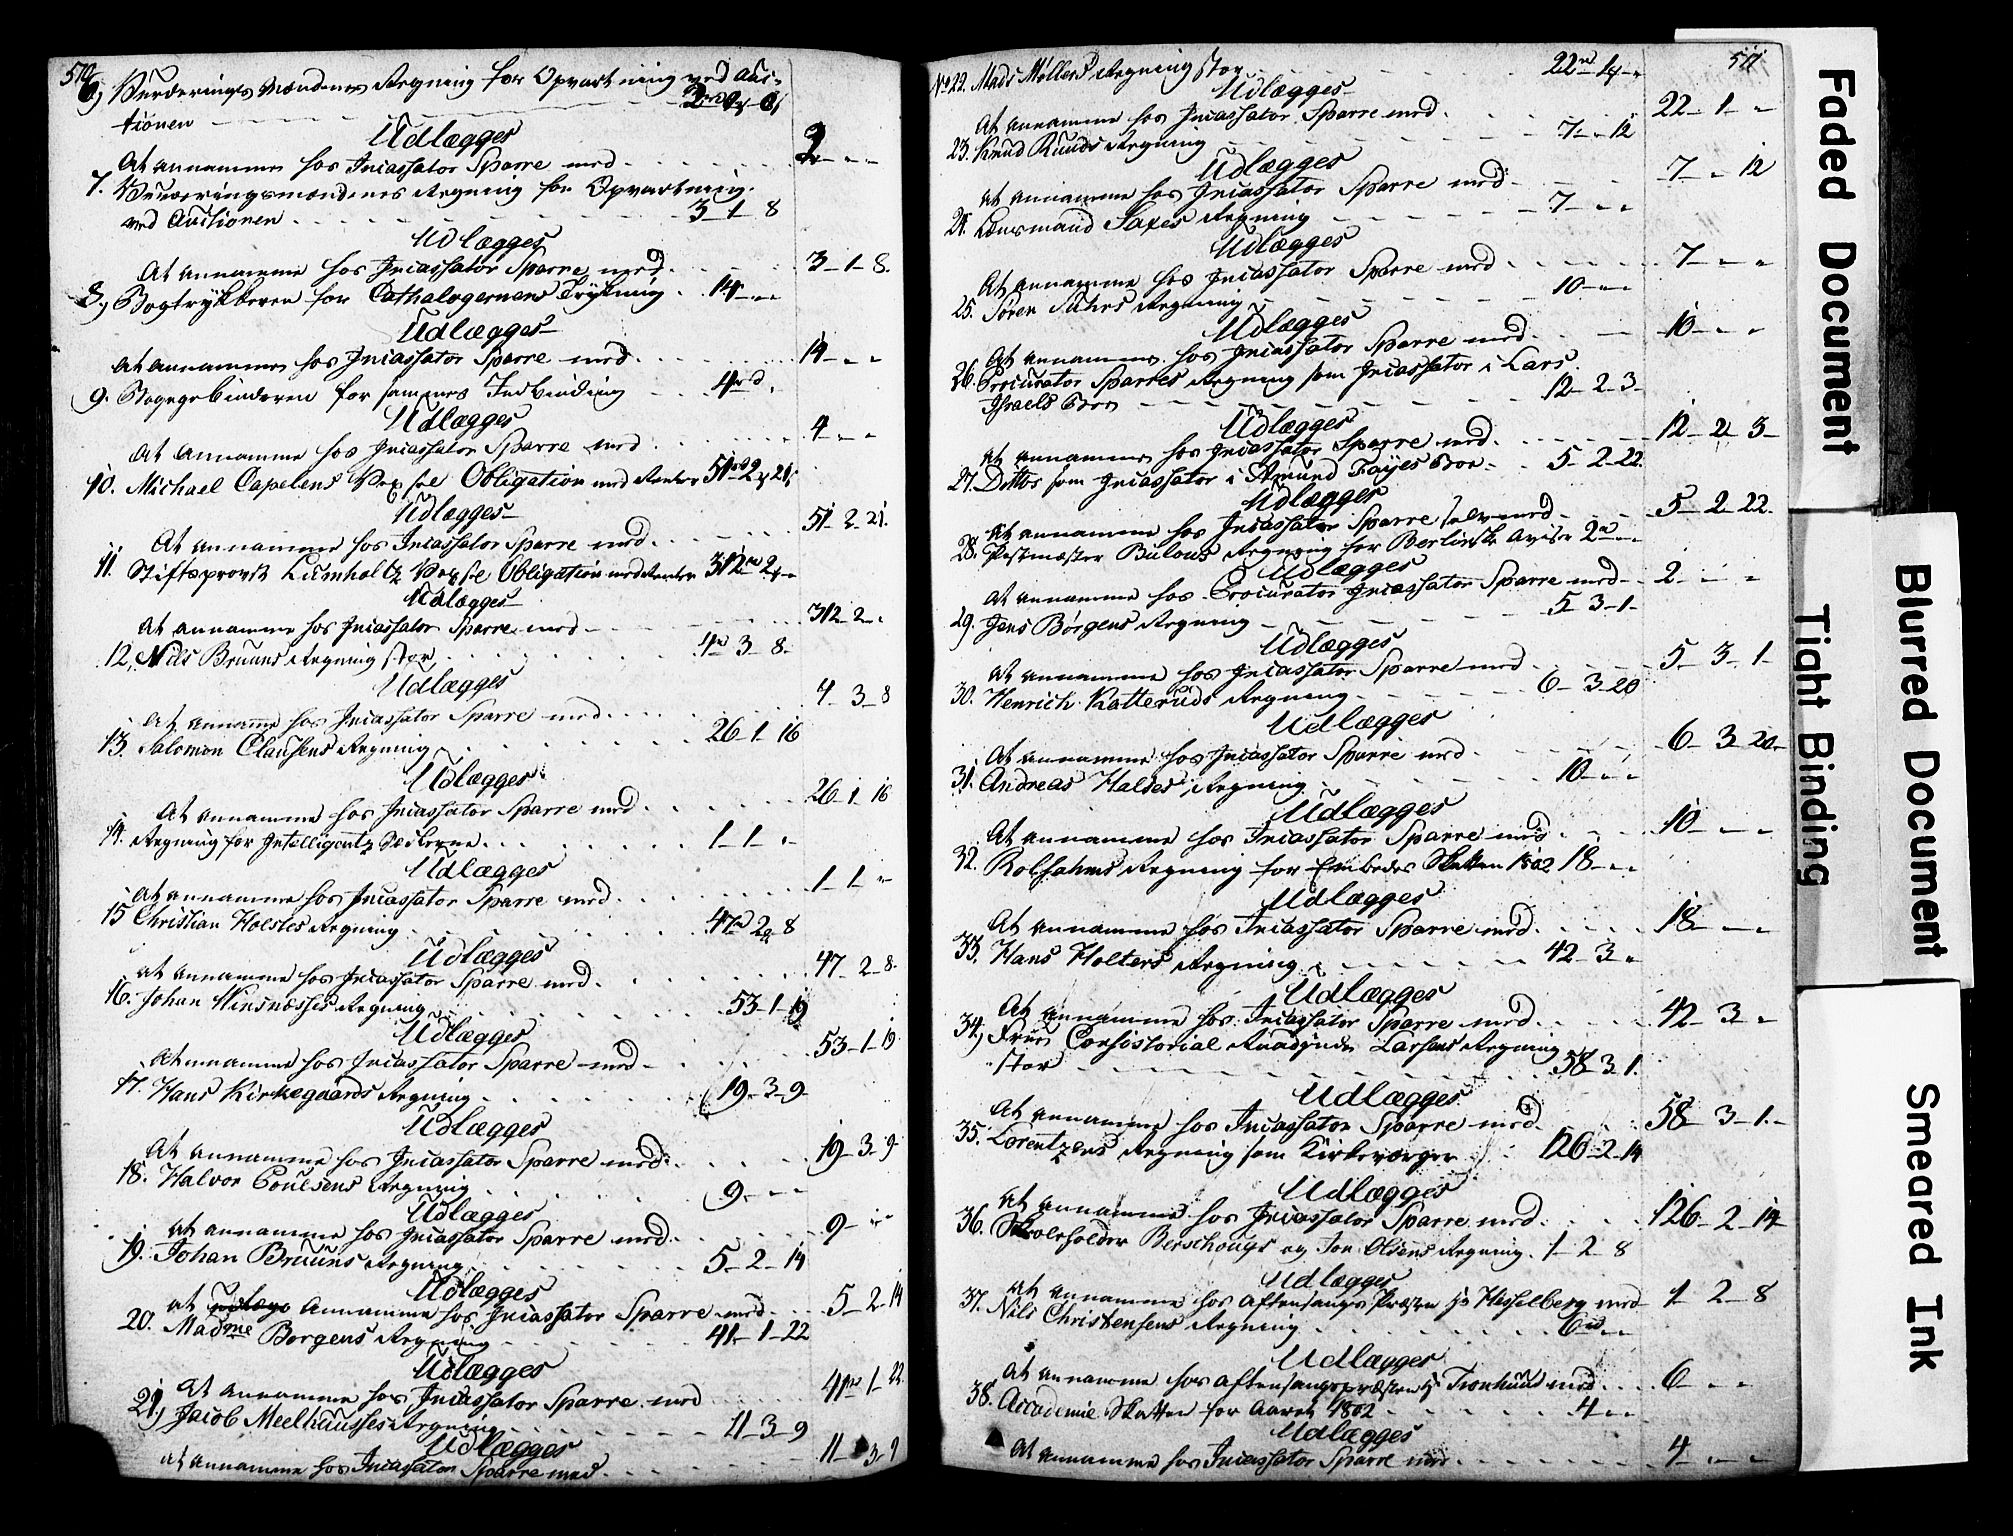 510
6, Vurderings Mændenes Regning for Opvartning ved Auc-
tionen
Udlægges
At annamme hos Incassator Sparre med 2 - -
7. Vurderingsmændenes Regning for Opvartning
ved Auctionen 3 - 1 - 8
Udlægges
At annamme hos Incassator Sparre med 3 - 1 - 8.
8, Bogtrykkeren for Cathalogernes Trykning 14 - -
Udlægges
At annamme hos Incassator Sparre med 14 - -
9. Bogebinderen for sammes Indbinding 4 rd
Udlægges
At annamme hos Incassator Sparre med 4 - -
10. Michael Capelens Obligation med Renter 51 - 2 - 21
Udlægges
At annamme hos Incassator Sparre med 51 - 2 - 21.
11. Stiftsprovst Lumholtz Obligation med Renter 312 - 2 -
Udlægges
At annamme hos Incassator Sparre med 312 - 2 -
12, Nils Bruuns Regning stor 4 - 3 - 8
Udlægges
At annamme hos Incassator Sparre med 4 - 3 - 8
13. Salomon Clausens Regning 26 - 1 - 16
Udlægges
At annamme hos Incassator Sparre med 26 - 1 - 16
14. Regning for Intelligentz Sedlerne 1 - 1 -
Udlægges
At annamme hos Incassator Sparre med 1 - 1 -
15 Christian Holstes Regning 47 - 2 - 8
Udlægges
At annamme hos Incassator Sparre med 47 - 2 - 8.
16. Johan Winsnæsses Regning 53 - 1 - 19
Udlægges
At annamme hos Incassator Sparre med 53 - 1 - 19
17. Hans Kirkegaards Regning 19 - 3 - 9
Udlægges
At annamme hos Incassator Sparre med 19 - 3 - 9
18. Halvor Poulsens Regning 9 - -
Udlægges
At annamme hos Incassator Sparre med 9 - -
19. Johan Bruuns Regning 5 - 2 - 14
Udlægges
At annamme hos Incassator Sparre med 5 - 2 - 14
20. Madme Borgens Regning 41 - 1 - 22
Udlægges
At annamme hos Incassator Sparre med 41 - 1 - 22
21, Jacob Meelhausses Regning 11 - 3 - 9
Udlægges
At annamme hos Incassator Sparre med 11 - 3 - 9
511
No 22. Mads Møllers Regning stor 22 - 1 -
Udlægges
At annamme hos Incassator Sparre med 22 - 1 -
23. Knud Ruuds Regning 7 - - 12
Udlægges
At annamme hos Incassator Sparre med 7 - - 12
24. Lensmand Saxes Regning 7 - -
Udlægges
At annamme hos Incassator Sparre med 7 - -
25. Søren Suhrs Regning 10 - -
Udlægges
At annamme hos Incassator Sparre med 10 - -
26. Procurator Sparres Regning som Incassator i Lars
Israels Boe 12 - 2 - 3
Udlægges
At annamme hos Incassator Sparre med 12 - 2 - 3
27. Dittos som Incassator i Amund Boe 5 - 2 - 22
Udlægges
At annamme hos Incassator Sparre selv med 5 - 2 - 22.
28. Postmæster Bulows Regning for Berlinske Aviser 2 - -
Udlægges
At annamme hos Procurator Incassator Sparre med 2 - -
29. Jens Børgens Regning 5 - 3 - 1
Udlægges
At annamme hos Incassator Sparre med 5 - 3 - 1
30. Henrich Katteruds Regning 6 - 3 - 20
Udlægges
At annamme hos Incassator Sparre med 6 - 3 - 20
31. Andreas Haldes Regning 10 - -
Udlægges
At annamme hos Incassator Sparre med 10 - -
32. Rolfsahms Regning for Embeds Skatten 1802 18 - -
Udlægges
At annamme hos Incassator Sparre med 18 - -
33. Hans Holters Regning 42 - 3 -
Udlægges
At annamme hos Incassator Sparre med 42 - 3 -
34, Frue Consistorial Raadinde Larsens Regning
stor 58 - 3 - 1.
Udlægges
At annamme hos Incassator Sparre med 58 - 3 - 1
35. Lorentzens Regning som Kirkeværger 126 - 2 - 14
Udlægges
At annamme hos Incassator Sparre med 126 - 2 - 14
36. Skoleholder Berschougs og Jon Olsens Regning 1 - 2 - 8
Udlægges
At annamme hos Aftensangs Præsten Hr Hesselberg med 1 - 2 - 8
37. Nils Christensens Regning 6 - -
Udlægges
At annamme hos Aftensangspræsten Hr Tronhuus med 6 - -
38. Accademie Skatten for Aaret 1802 4 - -
Udlægges
At annamme hos Incassator Sparre med 4 - -
Faded Document
Tight Binding
Blurred Document
Smeared Ink